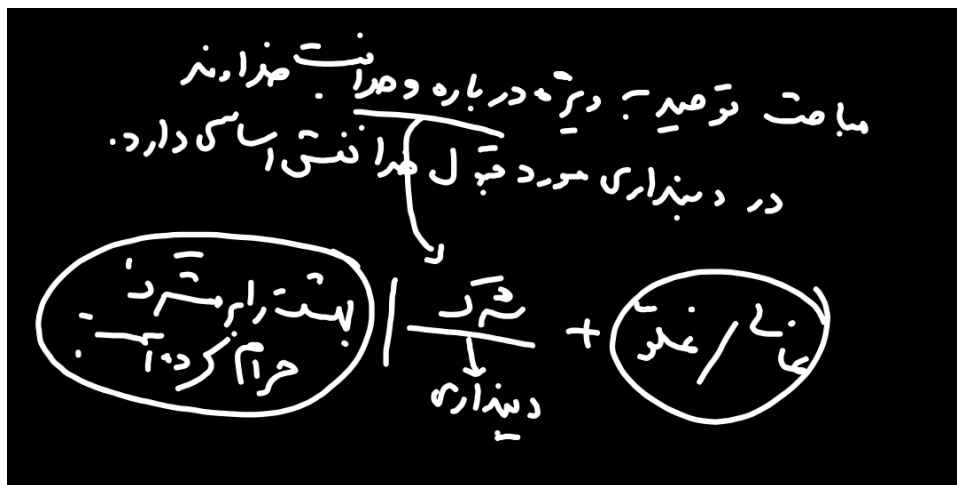 مباحث توحید به ویژه درباره وحدانیت خداوند
در دینداری مورد قبول خدا نقش اساسی دارد.
غالی / غلوّ + شرک | بهشت را بر مشرک
دینداری حرام کرده است